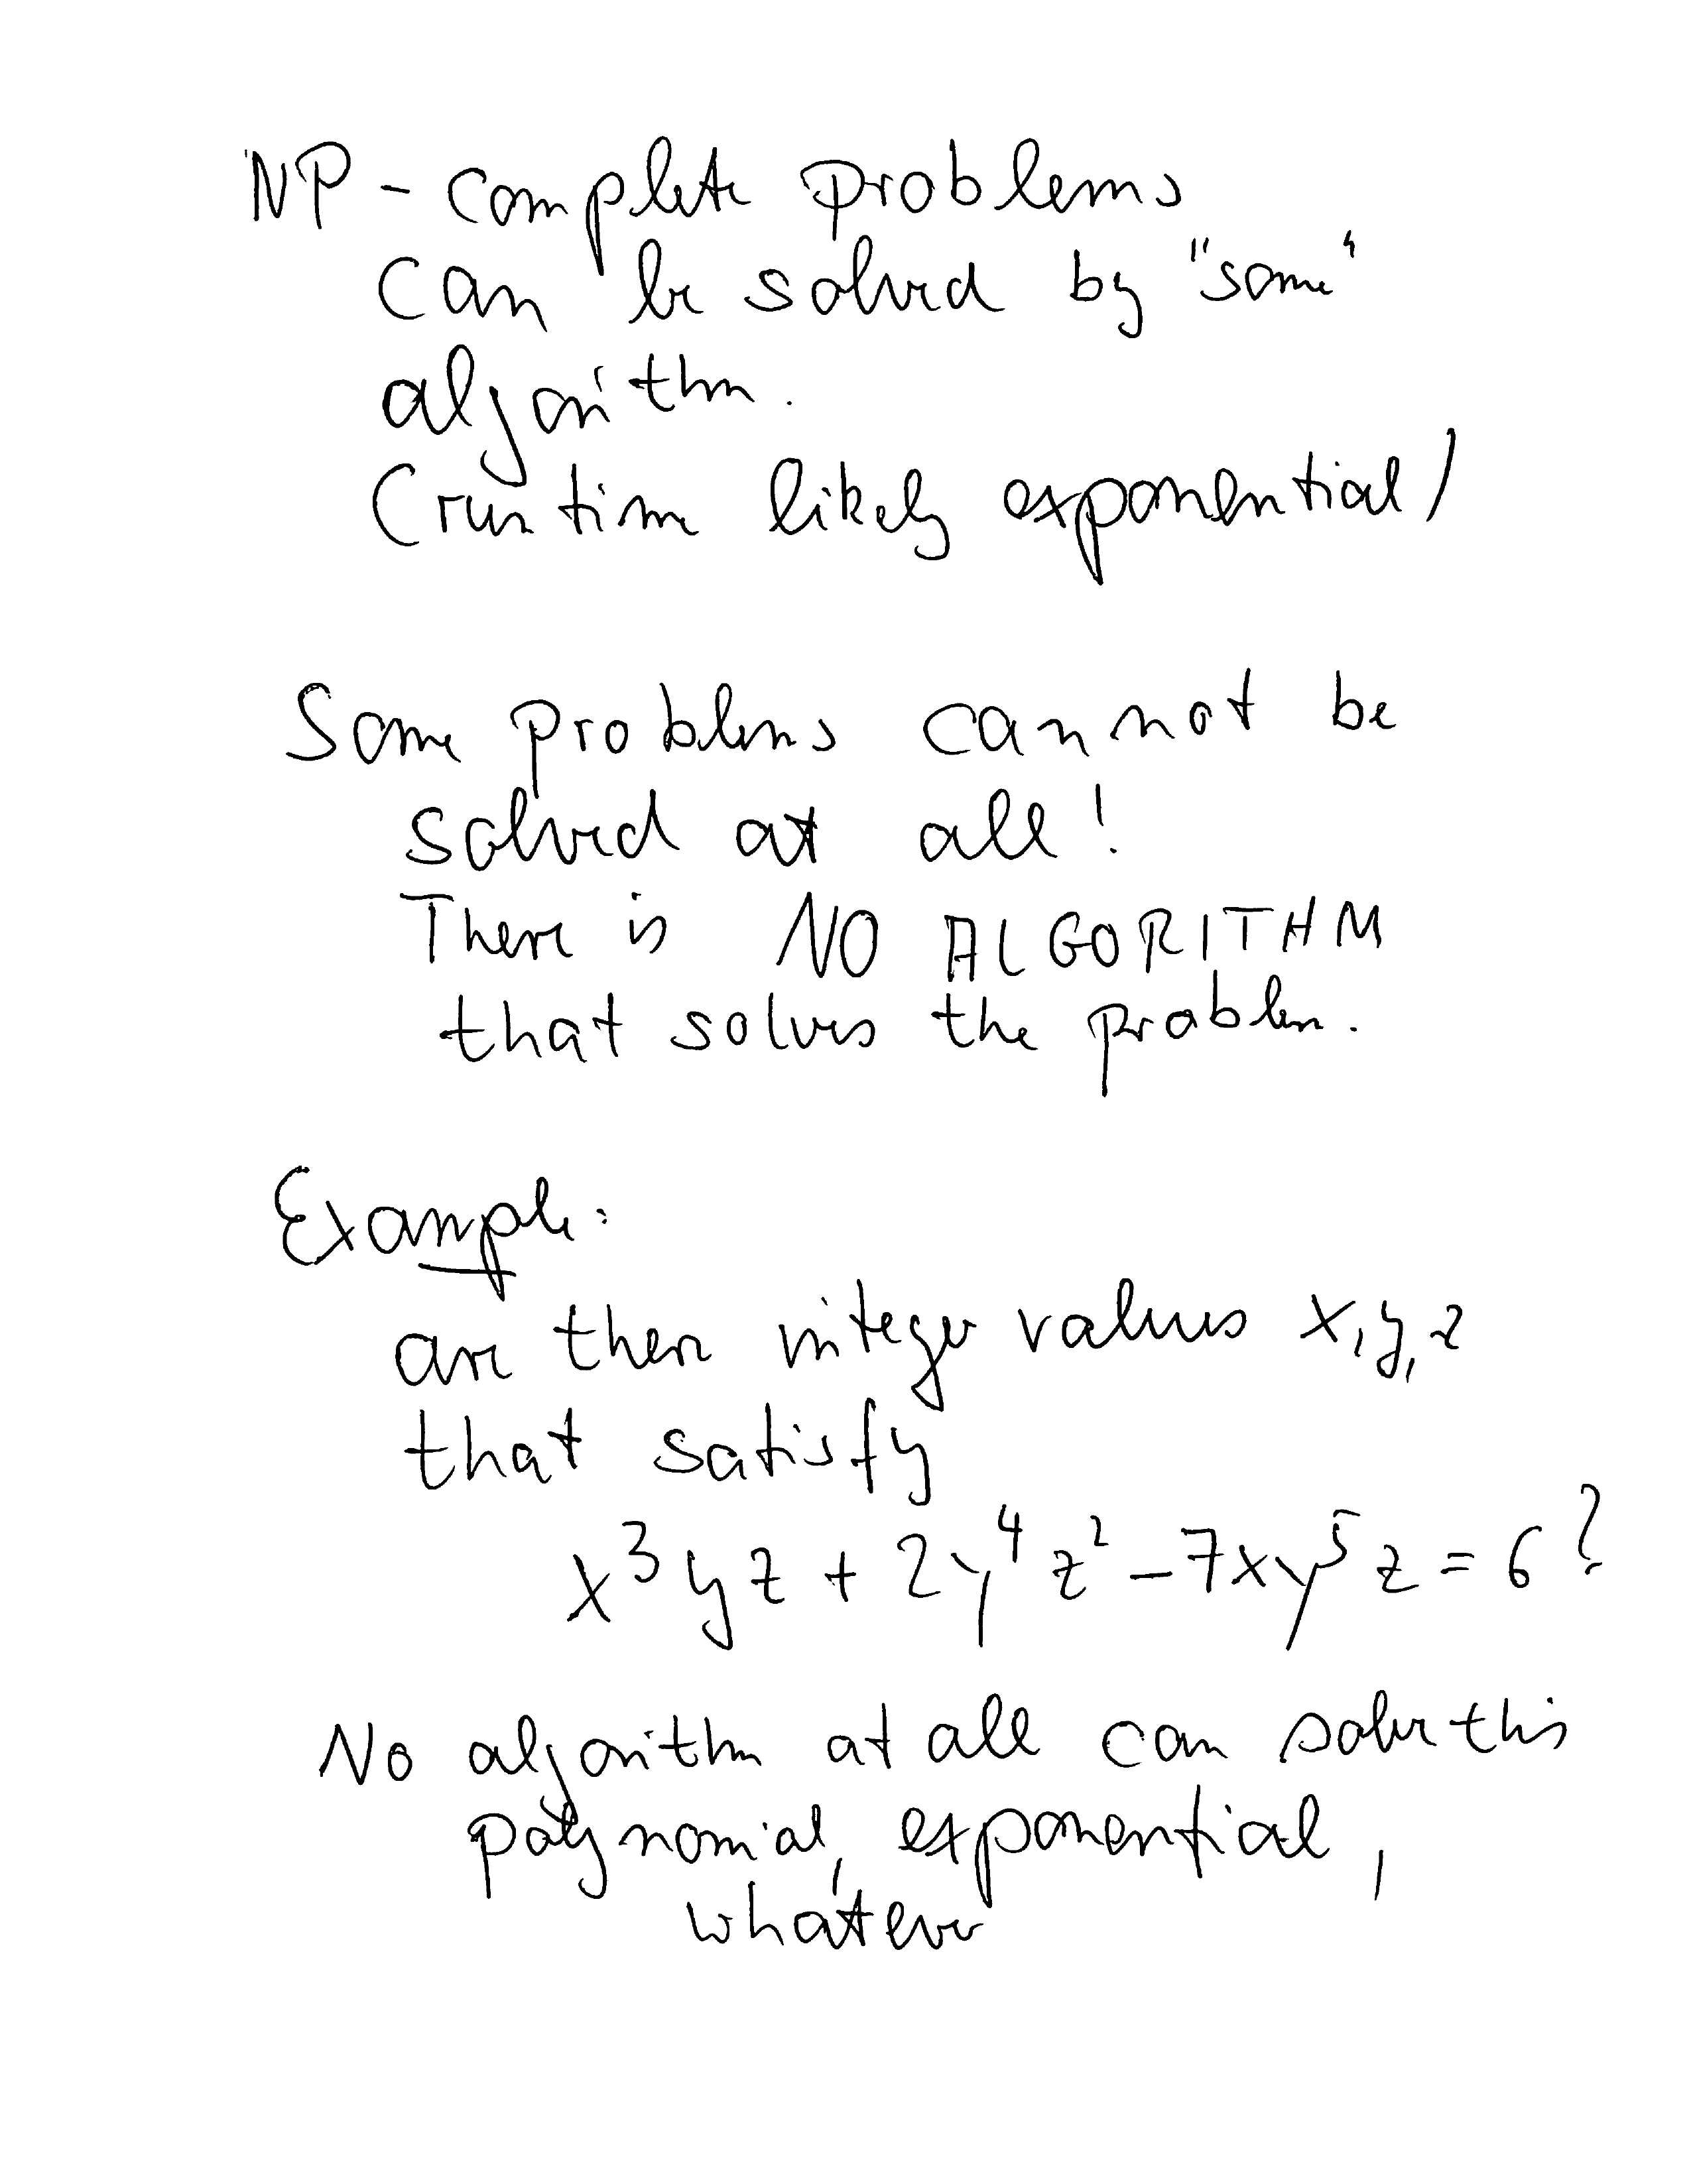 NP-complete problems
can be solved by "some"
algorithm.
(runtime likely exponential)
Some problems cannot be
solved at all!
There is NO ALGORITHM
that solves the problem.
Example:
are there integer values x, y, z
that satisfy
x³yz + 2y⁴z² - 7xy⁵z = 6?
No algorithm at all can solve this
polynomial, exponential,
whatever